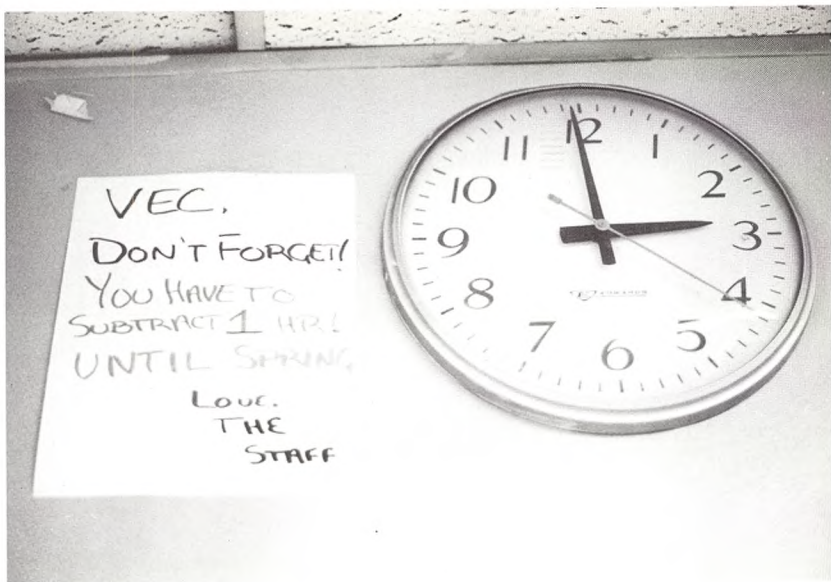 VEC.
DON'T FORGET!
YOU HAVE TO
SUBTRACT 1 HR!
UNTIL SPRING
LOVE.
THE
STAFF
12
1
2
3
4
5
6
7
8
9
10
11